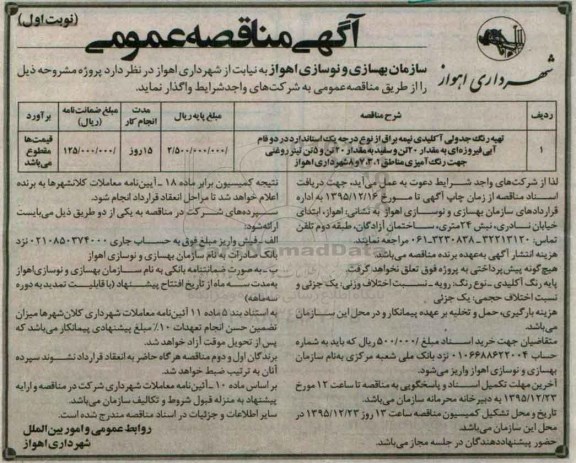 (نوبت اول)
آگهی مناقصه عمومی
شهرداری اهواز
سازمان بهسازی و نوسازی اهواز به نیابت از شهرداری اهواز در نظر دارد پروژه مشروحه ذیل
را از طریق مناقصه عمومی به شرکت‌های واجد شرایط واگذار نماید.
ردیف شرح مناقصه مبلغ پایه ریال مدت انجام کار مبلغ ضمانت‌نامه (ریال) برآورد
۱ تهیه رنگ جدولی آکلیدی نیمه براق از نوع درجه یک استاندارد در دو فام
آبی فیروزه‌ای به مقدار ۲۰تن و سفید به مقدار ۲۰تن و ۵تن تینر روغنی
جهت رنگ آمیزی مناطق ۷،۳،۱و۸شهرداری اهواز
۲/۵۰۰/۰۰۰/۰۰۰ ۱۵روز ۱۲۵/۰۰۰/۰۰۰ قیمت‌ها مقطوع می‌باشد
لذا از شرکت‌های واجد شرایط دعوت به عمل می‌آید، جهت دریافت
اسناد مناقصه از زمان چاپ آگهی تا مورخ ۱۳۹۵/۱۲/۱۶ به اداره
قراردادهای سازمان بهسازی و نوسازی اهواز به نشانی: اهواز، ابتدای
خیابان نادری، نبش ۲۴متری، ساختمان آزادگان، طبقه دوم تلفن
تماس: ۳۲۲۱۳۱۲۰-۳۲۳۰۸۳۸-۰۶۱ مراجعه نمایند.
هزینه انتشار آگهی به‌عهده برنده مناقصه می‌باشد.
هیچ‌گونه پیش‌پرداختی به پروژه فوق تعلق نخواهد گرفت.
پایه رنگ آکلیدی ـ نوع رنگ: رویه ـ نسبت اختلاط وزنی: یک جزئی و
نسبت اختلاف حجمی: یک جزئی
هزینه بارگیری، حمل و تخلیه بر عهده پیمانکار و در محل این سازمان
می‌باشد.
متقاضیان جهت خرید اسناد مبلغ ۵۰۰/۰۰۰ ریال که باید به شماره
حساب ۰۱۰۶۶۸۸۶۲۲۰۰۴ نزد بانک ملی شعبه مرکزی به‌نام سازمان
بهسازی و نوسازی اهواز واریز می‌شود.
آخرین مهلت تکمیل اسناد و پاسخگویی به مناقصه تا ساعت ۱۲ مورخ
۱۳۹۵/۱۲/۲۳ به دبیرخانه محرمانه سازمان می‌باشد.
تاریخ و محل تشکیل کمیسیون مناقصه ساعت ۱۳ روز ۱۳۹۵/۱۲/۲۳ در
محل این سازمان می‌باشد.
حضور پیشنهاددهندگان در جلسه مجاز می‌باشد.
نتیجه کمیسیون برابر ماده ۱۸ ـ آیین‌نامه معاملات کلانشهرها به برنده
اعلام خواهد شد تا مراحل انعقاد قرارداد انجام شود.
سپرده‌های شرکت در مناقصه به یکی از دو طریق ذیل می‌بایست
ارائه‌شود:
الف ـ فیش واریز مبلغ فوق به حساب جاری ۰۲۱۰۸۵۰۳۷۴۰۰۰ نزد
بانک صادرات به نام سازمان بهسازی و نوسازی اهواز
ب ـ به صورت ضمانتنامه بانکی به نام سازمان بهسازی و نوسازی اهواز
به‌مدت سه ماه از تاریخ افتتاح پیشنهاد (با قابلیت تمدید به دوره
سه‌ماهه)
به استناد بند ۵ ماده ۱۱ آئین‌نامه معاملات شهرداری کلان‌شهرها میزان
تضمین حسن انجام تعهدات ۱۰٪ مبلغ پیشنهادی پیمانکار می‌باشد که
پس از تحویل موقت آزاد خواهد شد.
برندگان اول و دوم مناقصه هرگاه حاضر به انعقاد قرارداد نشوند سپرده
آنان به ترتیب ضبط خواهد شد.
بر اساس ماده ۱۰ ـ آئین‌نامه معاملات شهرداری شرکت در مناقصه و ارایه
پیشنهاد به منزله قبول شروط و تکالیف سازمان می‌باشد.
سایر اطلاعات و جزئیات در اسناد مناقصه مندرج شده است.
روابط عمومی و امور بین الملل
شهرداری اهواز